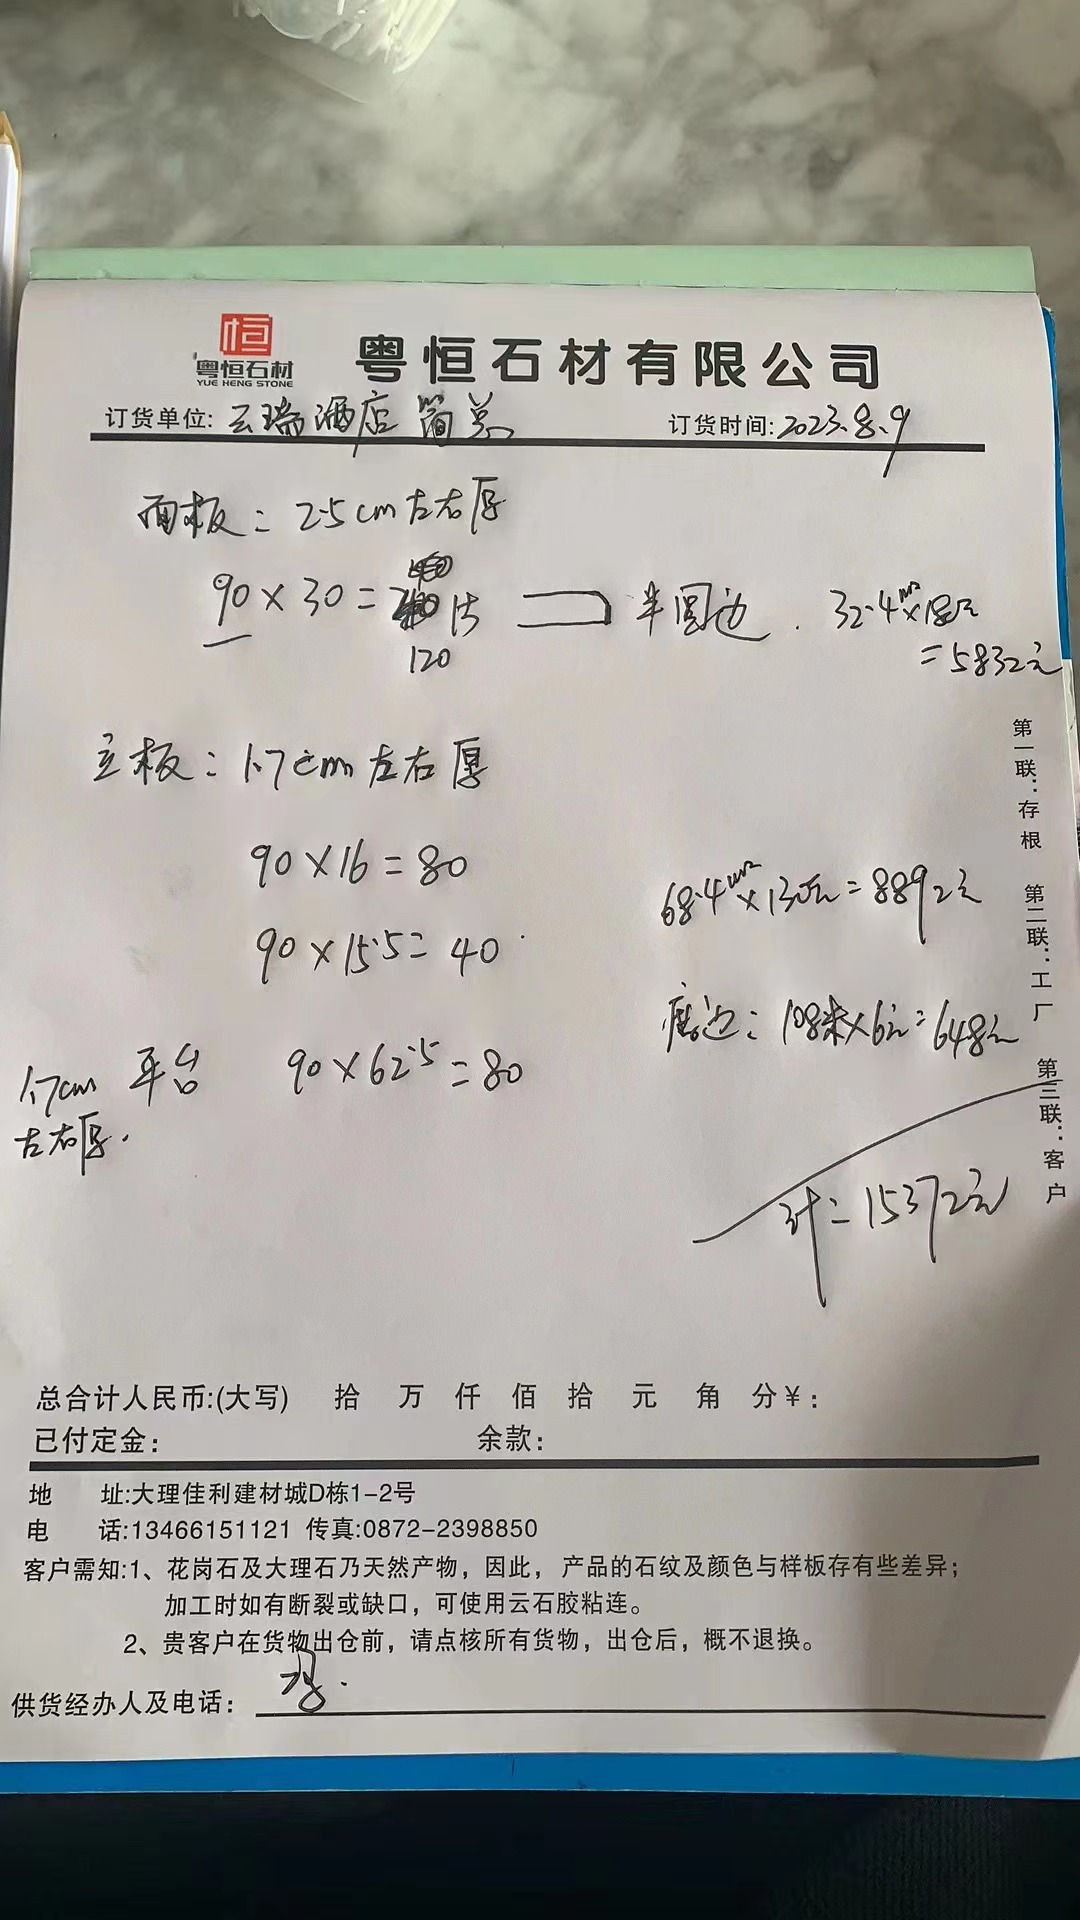 恒
粤恒石材
YUE HENG STONE
粤恒石材有限公司
订货单位: 云瑞酒店 简总
订货时间: 2023.8.9
面板: 2.5cm左右厚
90×30=
块
120
半圆边.
32.4m²×180元
=5832元
立板: 1.7cm左右厚
90×16=80
90×15.5=40
68.4m²×130元=8892元
磨边: 108米×6元=648元
1.7cm
左右厚.
平台 90×62.5=80
计=15372元
第一联：存根
第二联：工厂
第三联：客户
总合计人民币:(大写) 拾 万 仟 佰 拾 元 角 分￥:
已付定金: 余款:
地 址:大理佳利建材城D栋1-2号
电 话:13466151121 传真:0872-2398850
客户需知:1、花岗石及大理石乃天然产物，因此，产品的石纹及颜色与样板存有些差异；
加工时如有断裂或缺口，可使用云石胶粘连。
2、贵客户在货物出仓前，请点核所有货物，出仓后，概不退换。
供货经办人及电话: